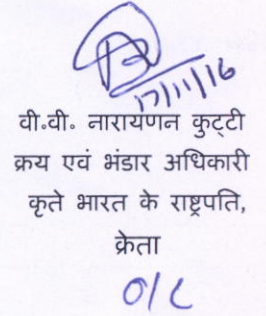 17/11/16
वी॰वी॰ नारायणन कुट्टी
क्रय एवं भंडार अधिकारी
कृते भारत के राष्ट्रपति,
क्रेता
O/C